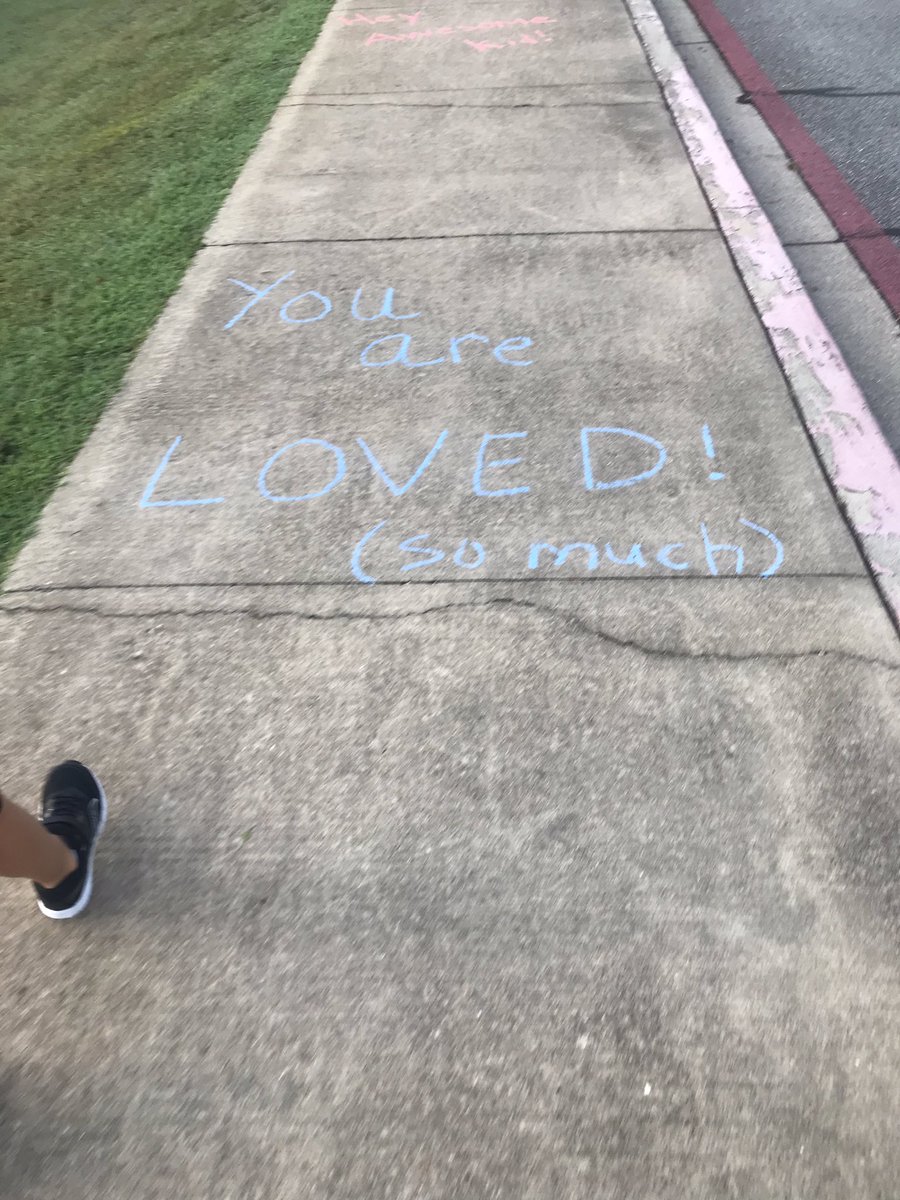 Hey
Awesome
Kid!
You
are
LOVED!
(so much)